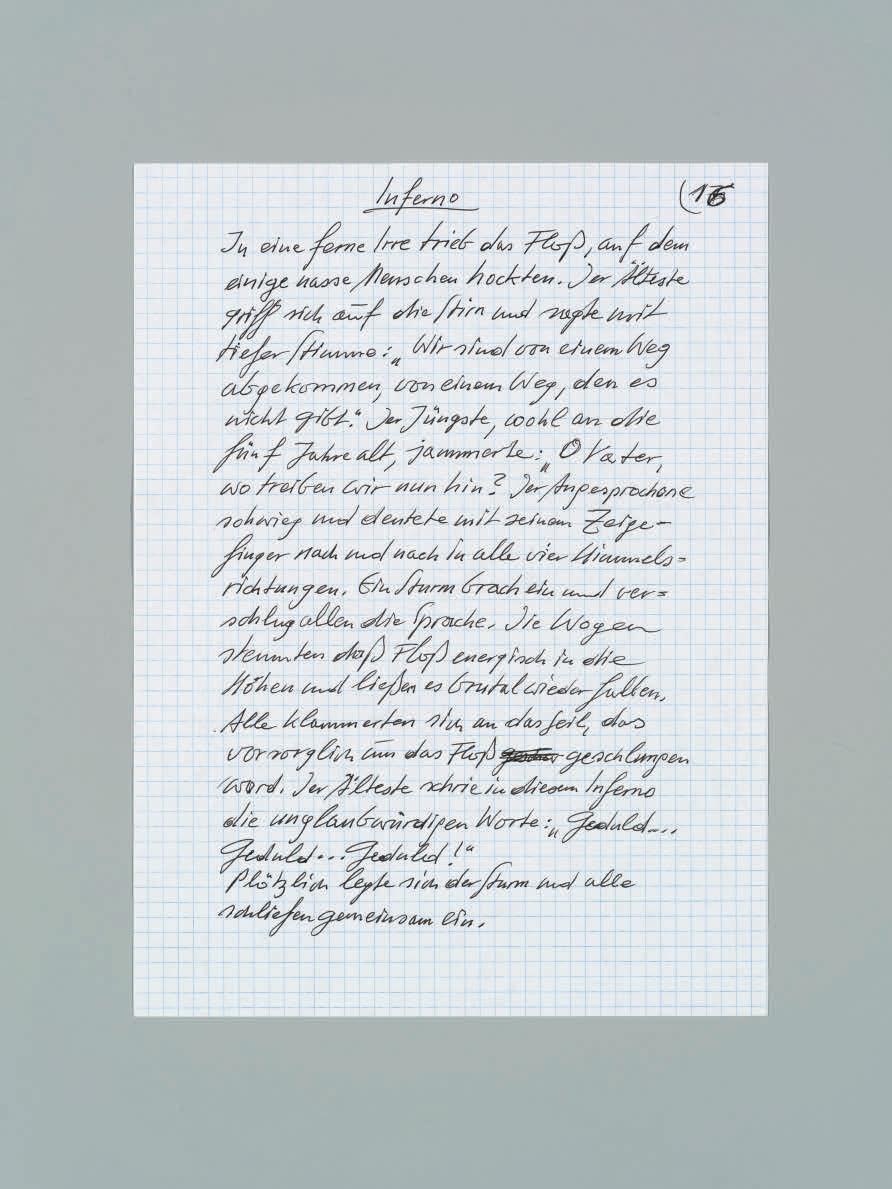 Inferno
(16
In eine ferne Irre trieb das Floß, auf dem
einige nasse Menschen hockten. Der Älteste
griff sich auf die Stirn und sagte mit
tiefer Stimme: „Wir sind von einem Weg
abgekommen, von einem Weg, den es
nicht gibt." Der Jüngste, wohl an die
fünf Jahre alt, jammerte: „O Vater,
wo treiben wir nun hin? Der Angesprochene
schwieg und deutete mit seinem Zeige-
finger nach und nach in alle vier Himmels=
richtungen. Ein Sturm brach ein und ver=
schlug allen die Sprache. Die Wogen
stemmten daß Floß energisch in die
Höhen und ließen es brutal wieder fallen.
Alle klammerten sich an das Seil, das
vorsorglich um das Floß geschlungen
ward. Der Älteste schrie in diesem Inferno
die unglaubwürdigen Worte: „Geduld...
Geduld... Geduld!"
Plötzlich legte sich der Sturm und alle
schliefen gemeinsam ein.